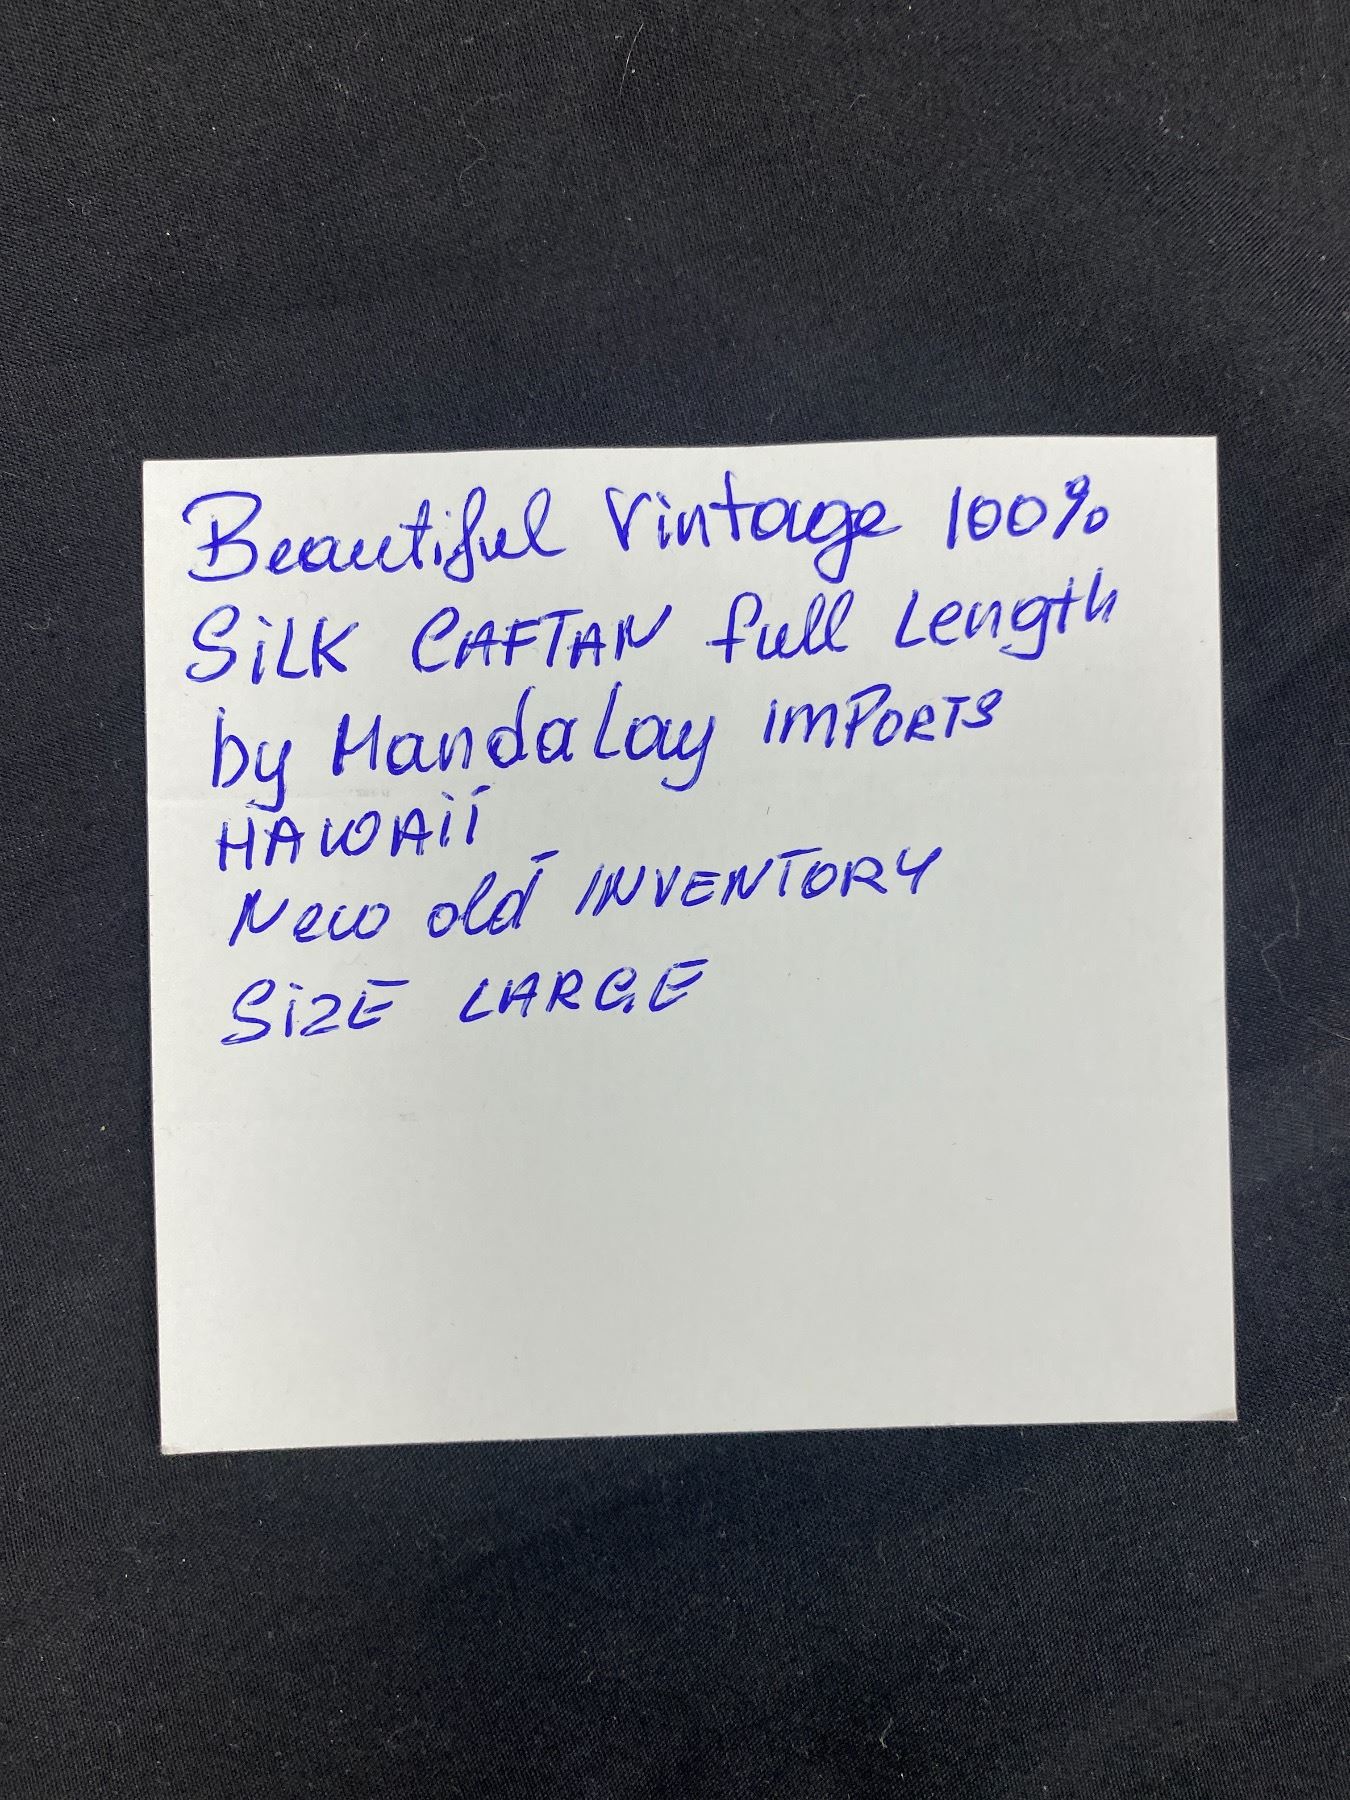 Beautiful Vintage 100%
SiLK CAFTAN full Length
by Mandalay imPORTS
HAWAii
New old INVENTORY
SiZE LARGE